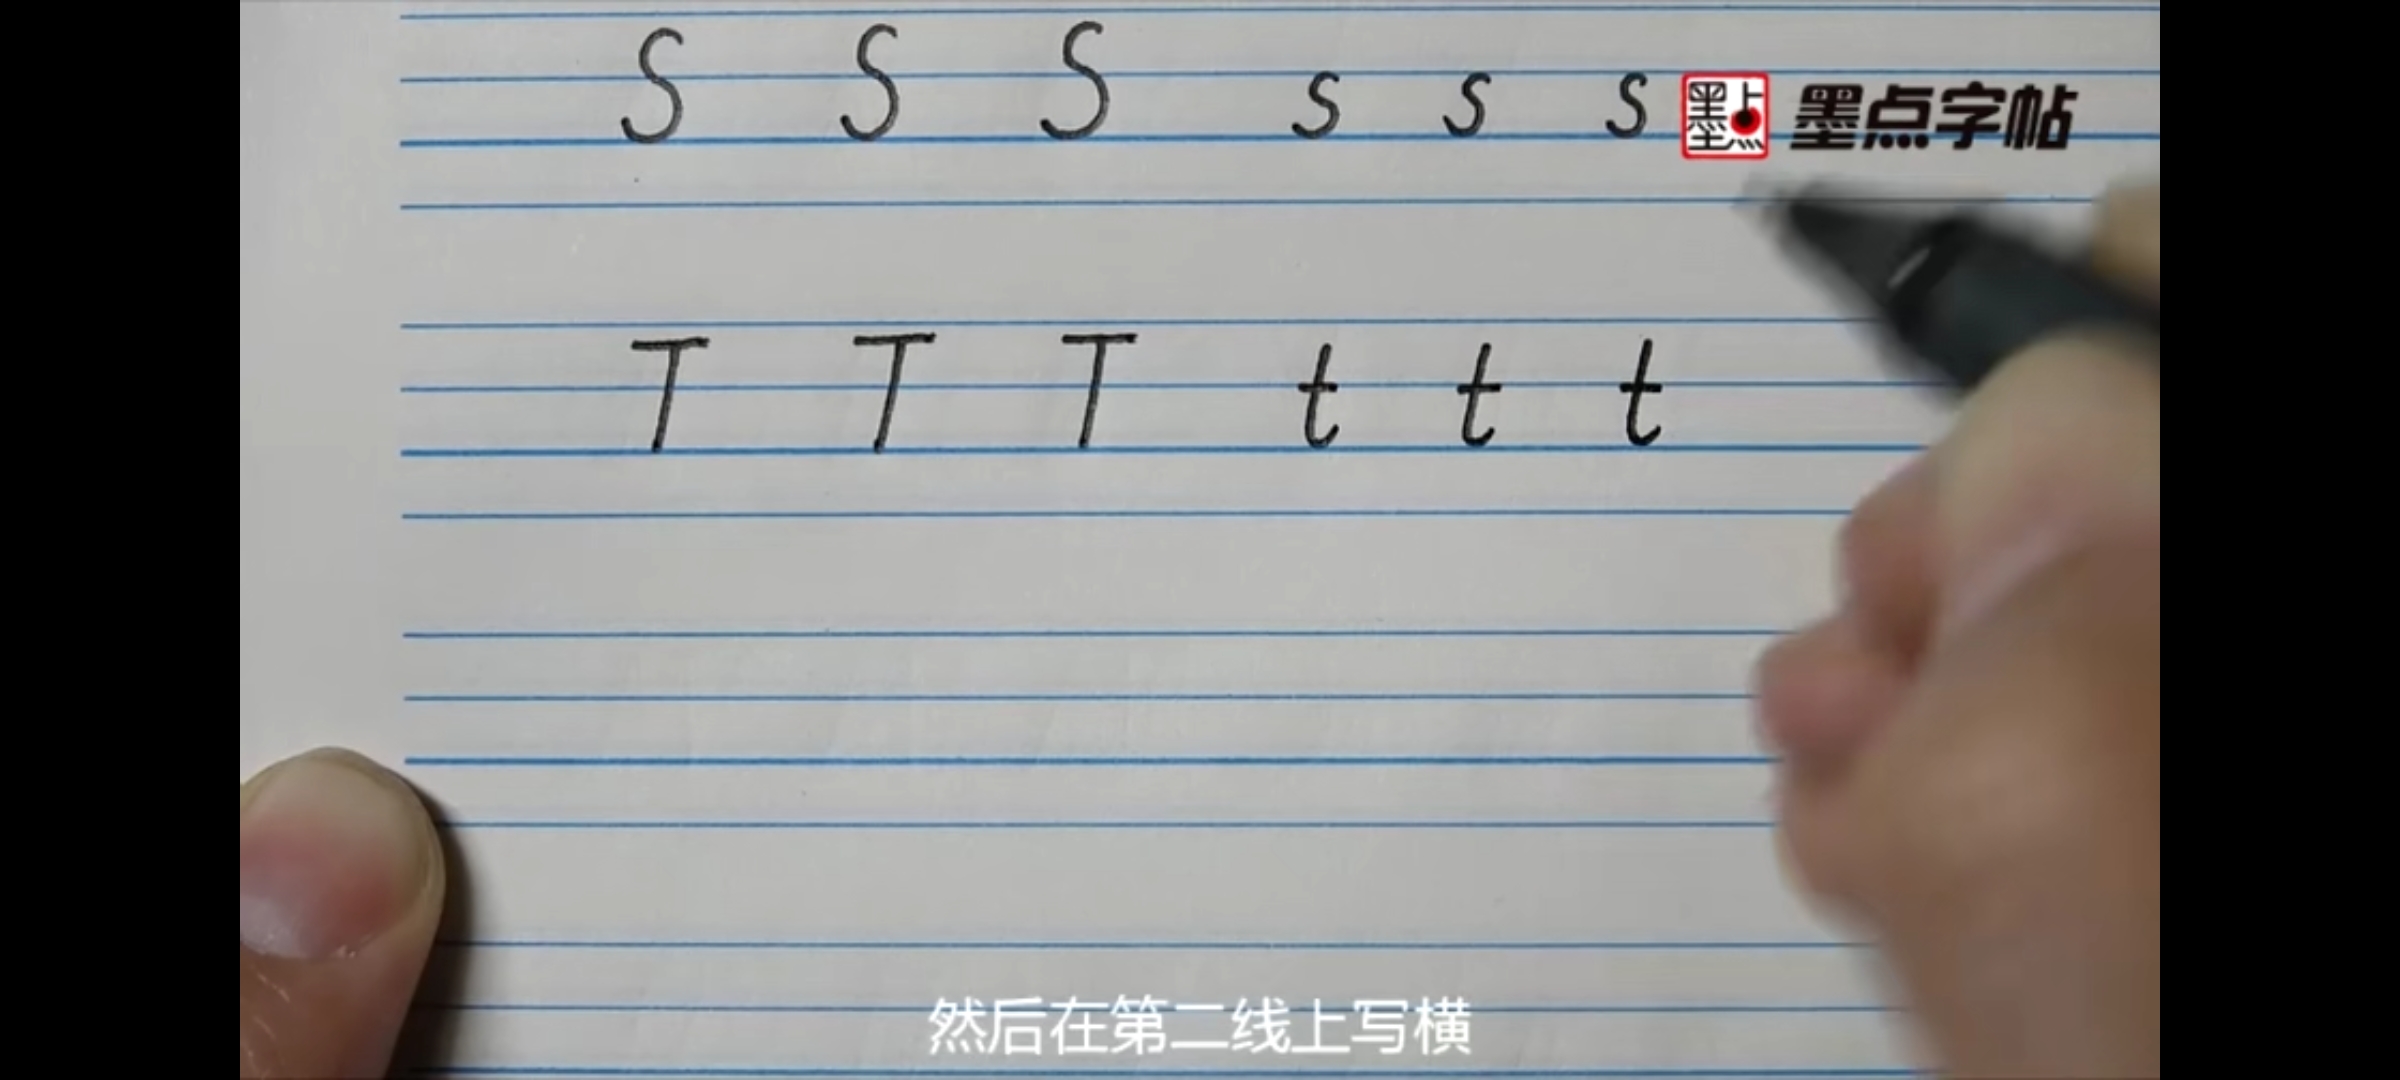 S S S s s s 墨点 墨点字帖
T T T t t t
然后在第二线上写横